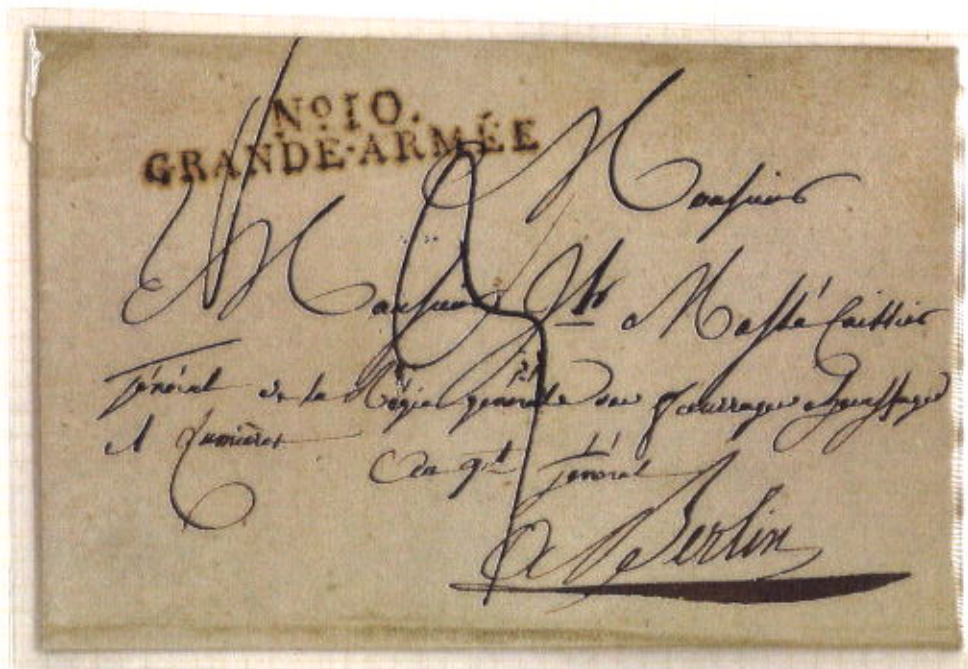 No 10.
GRANDE-ARMÉE
Monsieur
Monsieur Massé Caissier
Général de la Régie générale des fourrages chauffages
et Lumières
au qr. Général
a Berlin